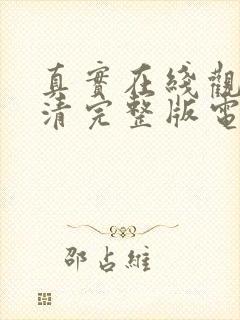 真實在綫觀
清完整版電
邵占維